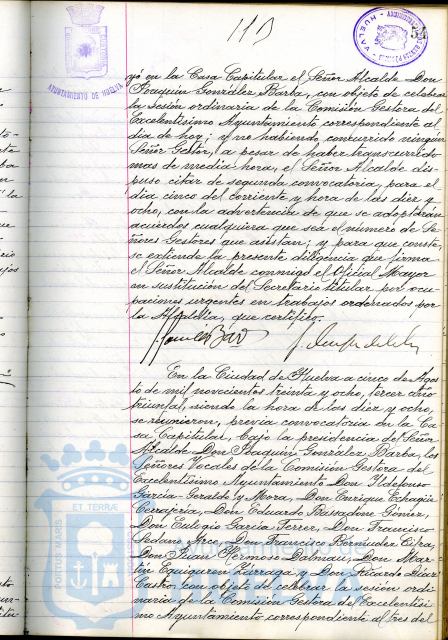 113
54
AYUNTAMIENTO DE HUELVA
HUELVA
yó en la Casa Capitular el Señor Alcalde Don
Joaquín González Barba, con objeto de celebrar
la sesión ordinaria de la Comisión Gestora del
Excelentísimo Ayuntamiento correspondiente al
día de hoy; y no habiendo concurrido ningún
Señor Gestor, a pesar de haber transcurrido
mas de media hora, el Señor Alcalde dis-
puso citar de segunda convocatoria, para el
día cinco del corriente y hora de las diez y
ocho, con la advertencia de que se adoptarán
acuerdos cualquiera que sea el número de Se-
ñores Gestores que asistan; y para que conste,
se extiende la presente diligencia que firma
el Señor Alcalde conmigo el Oficial Mayor
en sustitución del Secretario titular por ocu-
paciones urgentes en trabajos ordenados por
la Alcaldía, que certifico.
En la Ciudad de Huelva a cinco de Agos-
to de mil novecientos treinta y ocho, tercer año
triunfal, siendo la hora de las diez y ocho,
se reunieron, previa convocatoria en la Ca-
sa Capitular, bajo la presidencia del Señor
Alcalde Don Joaquín González Barba, los
Señores Vocales de la Comisión Gestora del
Excelentísimo Ayuntamiento Don Ildefonso
García-Geraldo y Mora, Don Enrique
Cerrajería, Don Eduardo Gómez,
Don Eulogio García Ferrer, Don Francisco
Seduno Arce, Don Francisco Bermúdez
Don Juan Don Mar-
tín Eguiguren Don Ricardo
Castro con objeto de celebrar la sesión ordi-
naria de la Comisión Gestora del Excelentísi-
mo Ayuntamiento correspondiente al tres del
PORTUS MARIS ET TERRAE